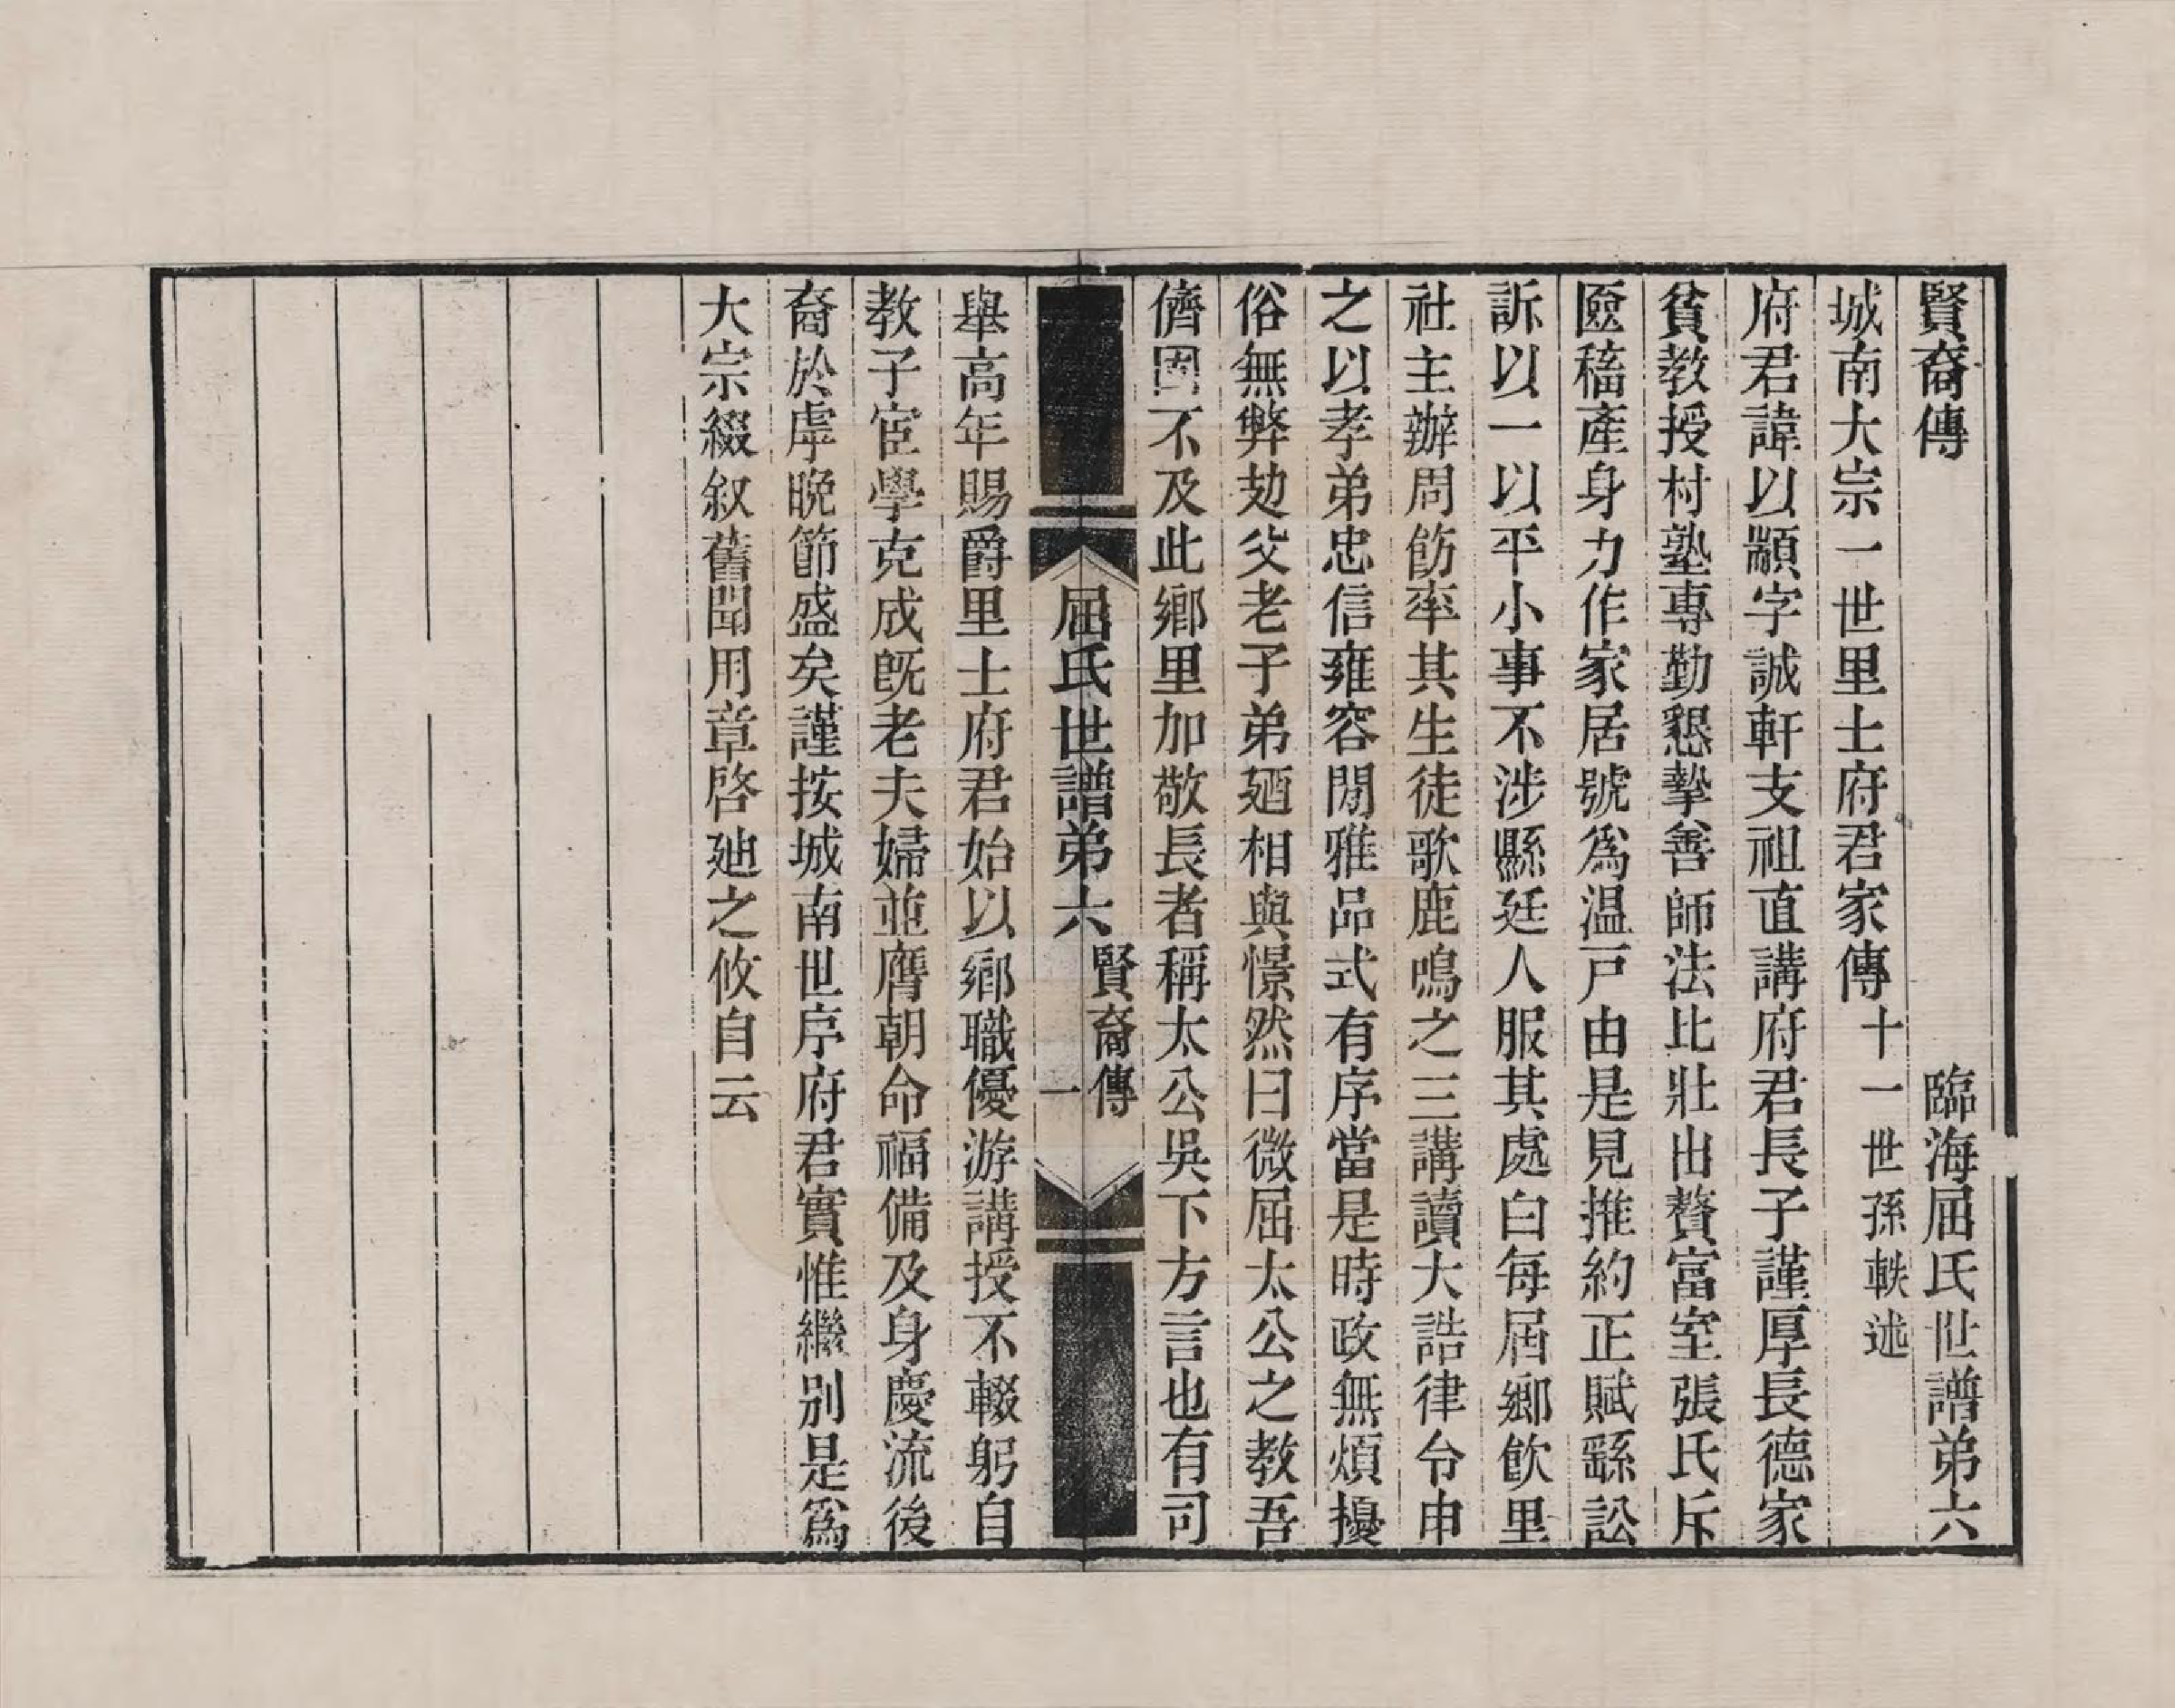 賢裔傳 臨海屈氏世譜弟六
城南大宗一世里士府君家傳 十一世孫軼述
府君諱以顓字誠軒支祖直講府君長子謹厚長德家
貧教授村塾專勤懇摯善師法比壯出贅富室張氏斥
匳穡產身力作家居號爲温戸由是見推約正賦繇訟
訴以一以平小事不涉縣廷人服其處白每屆鄉飲里
社主辦周飭率其生徒歌鹿鳴之三講讀大誥律令申
之以孝弟忠信雍容閒雅品式有序當是時政無煩擾
俗無弊攰父老子弟廼相與憬然曰微屈太公之教吾
儕固不及此鄉里加敬長者稱太公吳下方言也有司
屈氏世譜弟六 賢裔傳 一
舉高年賜爵里士府君始以鄉職優游講授不輟躬自
教子宦學克成旣老夫婦並膺朝命福備及身慶流後
裔於虖晚節盛矣謹按城南世序府君實惟繼别是爲
大宗綴叙舊聞用章啓廸之攸自云